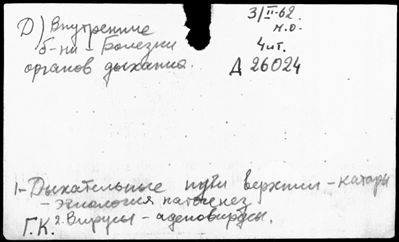 Д) Внутренние
б-ни - Болезни
органов дыхания.
3/II-62.
н.о.
4 чит.
Д 26024
1- Дыхательные пути верхние - катары
- этиология патогенез
2. Вирусы - аденовирусы.
Г.К.